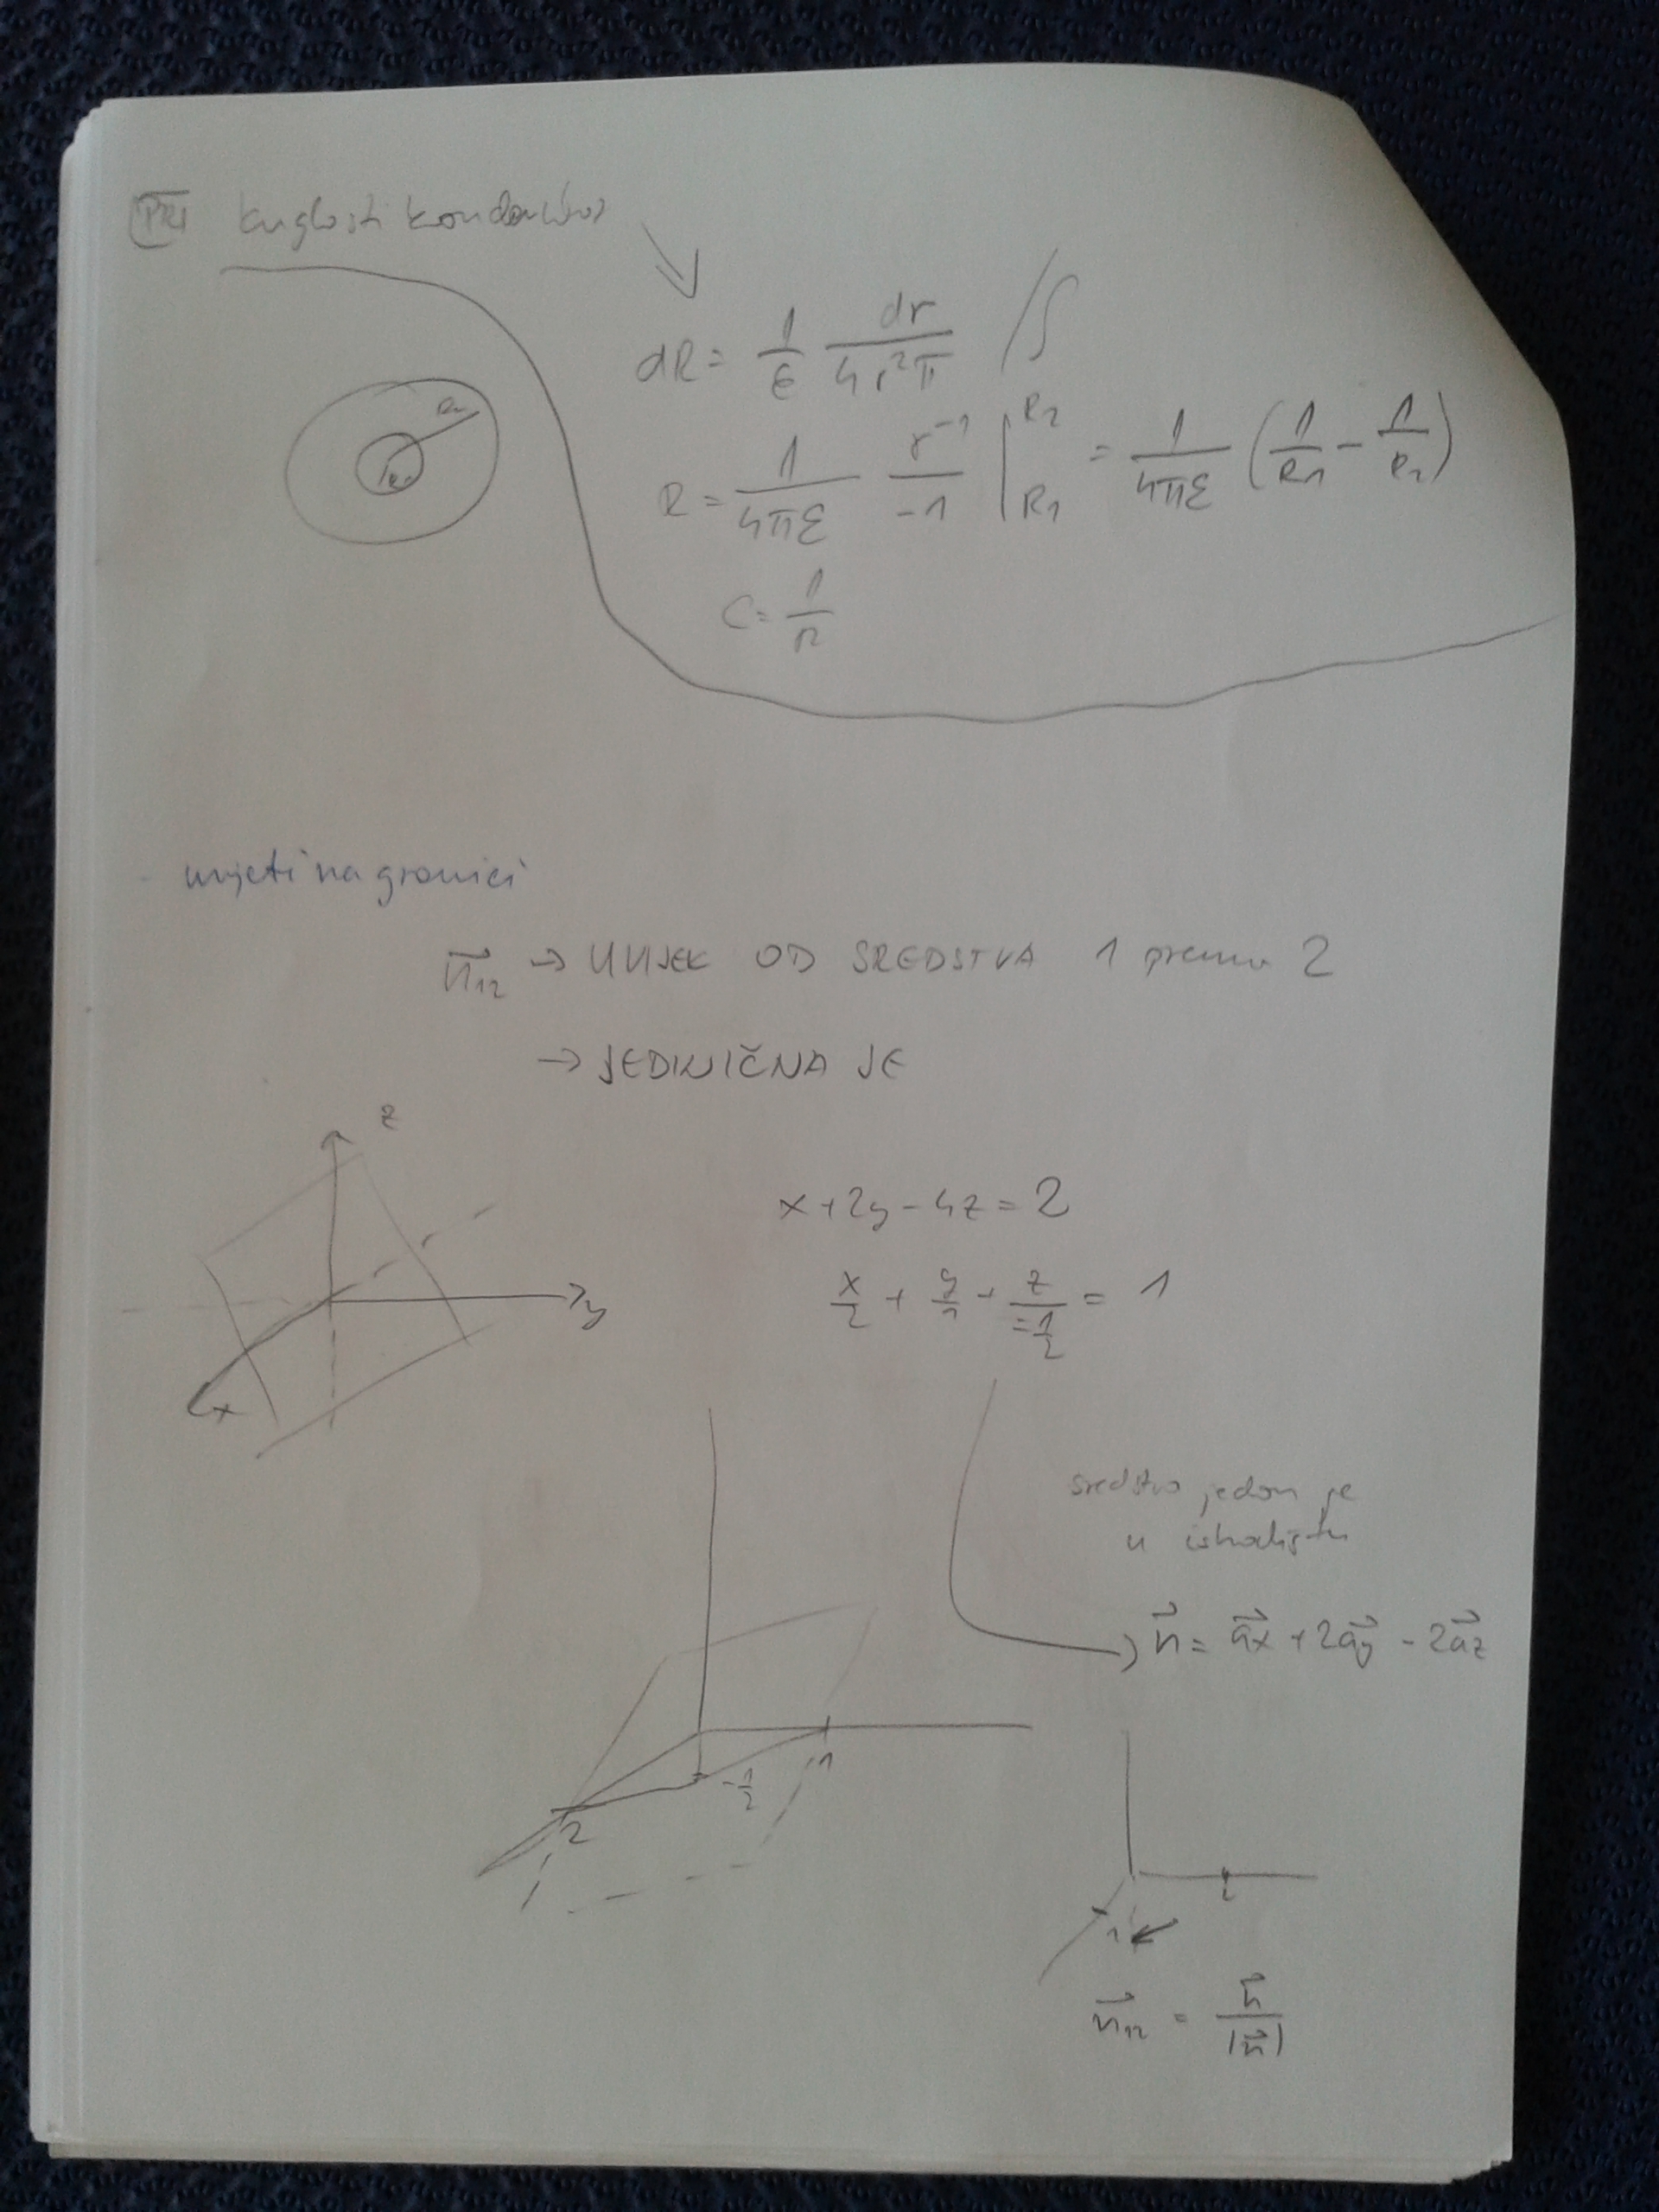 kuglasti kondenzator
dR = 1/ε dr/4r²π /∫
R = 1/4πε r⁻¹/-1 |R₂ R₁ = 1/4πε (1/R1 - 1/R2)
C = 1/R
R2
R1
- uvjeti na granici
n⃗12 → UVIJEK OD SREDSTVA 1 prema 2
→ JEDINIČNA JE
z
y
x
x + 2y - 4z = 2
x/2 + y/1 + z/-1/2 = 1
sredstvo jedan je
u ishodištu
n⃗ = a⃗x + 2a⃗y - 2a⃗z
-1/2
1
2
2
1
n⃗12 = n⃗/|n⃗|